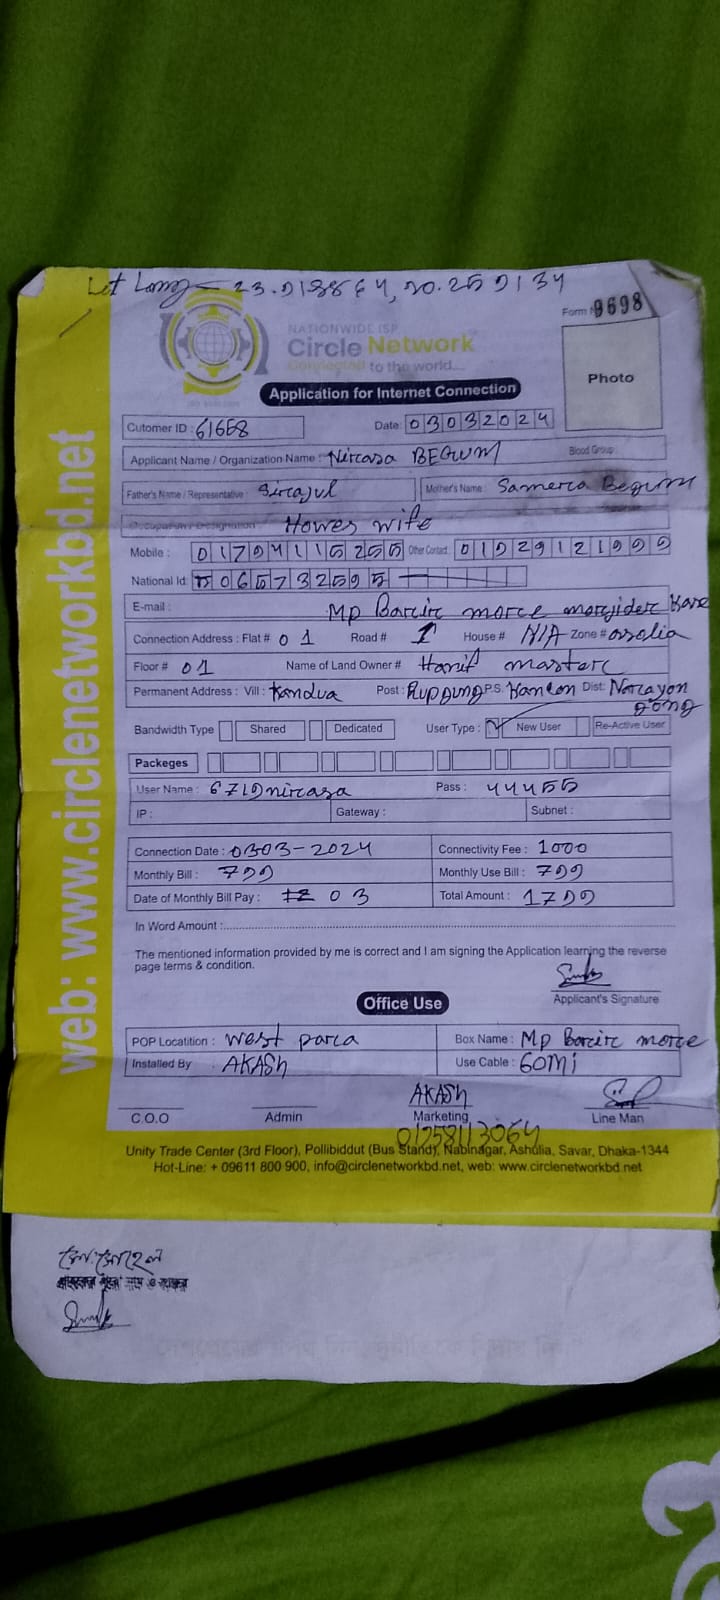 Let Long - 23.913864, 90.259134
Form N 9698
NATIONWIDE ISP
Circle Network
Connected to the world...
Photo
Application for Internet Connection
Cutomer ID : 61658
Date: 03032024
Applicant Name / Organization Name : Nircasa BEGUM
Blood Group
Father's Name / Representative : Sircajul Mother's Name : Samerca Begum
Occupation / Designation : Howes wife
Mobile : Other Contact: 01929121999
National Id
E-mail :
Mp Barcirc morce
Connection Address : Flat # 01 Road # 1 House # N/A Zone #
Floor # 01 Name of Land Owner # Hanif masterc
Permanent Address : Vill : Kandua Post : P.S. Dist: Norcayon gong
Bandwidth Type Shared Dedicated User Type : New User Re-Active User
Packeges
User Name : 6719nircasa Pass : 44455
IP : Gateway : Subnet :
Connection Date : 0303-2024 Connectivity Fee : 1000
Monthly Bill : 799 Monthly Use Bill : 799
Date of Monthly Bill Pay : 03 Total Amount : 1799
In Word Amount :
The mentioned information provided by me is correct and I am signing the Application learning the reverse
page terms & condition.
Applicant's Signature
Office Use
POP Locatition : west parca Box Name : Mp Barcirc morce
Installed By AKASH Use Cable : 60Mi
AKASH
C.O.O Admin Marketing Line Man
Unity Trade Center (3rd Floor), Pollibiddut (Bus Stand), Nabinagar, Ashulia, Savar, Dhaka-1344
Hot-Line: + 09611 800 900, info@circlenetworkbd.net, web: www.circlenetworkbd.net
web: www.circlenetworkbd.net